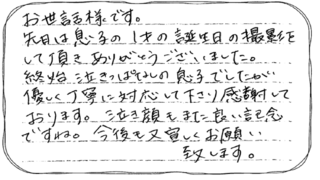 お世話様です。
先日は息子の1才の誕生日の撮影を
して頂きありがとうございました。
終始泣きっぱなしの息子でしたが
優しく丁寧に対応して下さり感謝して
おります。泣き顔もまた良い記念
ですね。今後も又宜しくお願い
致します。